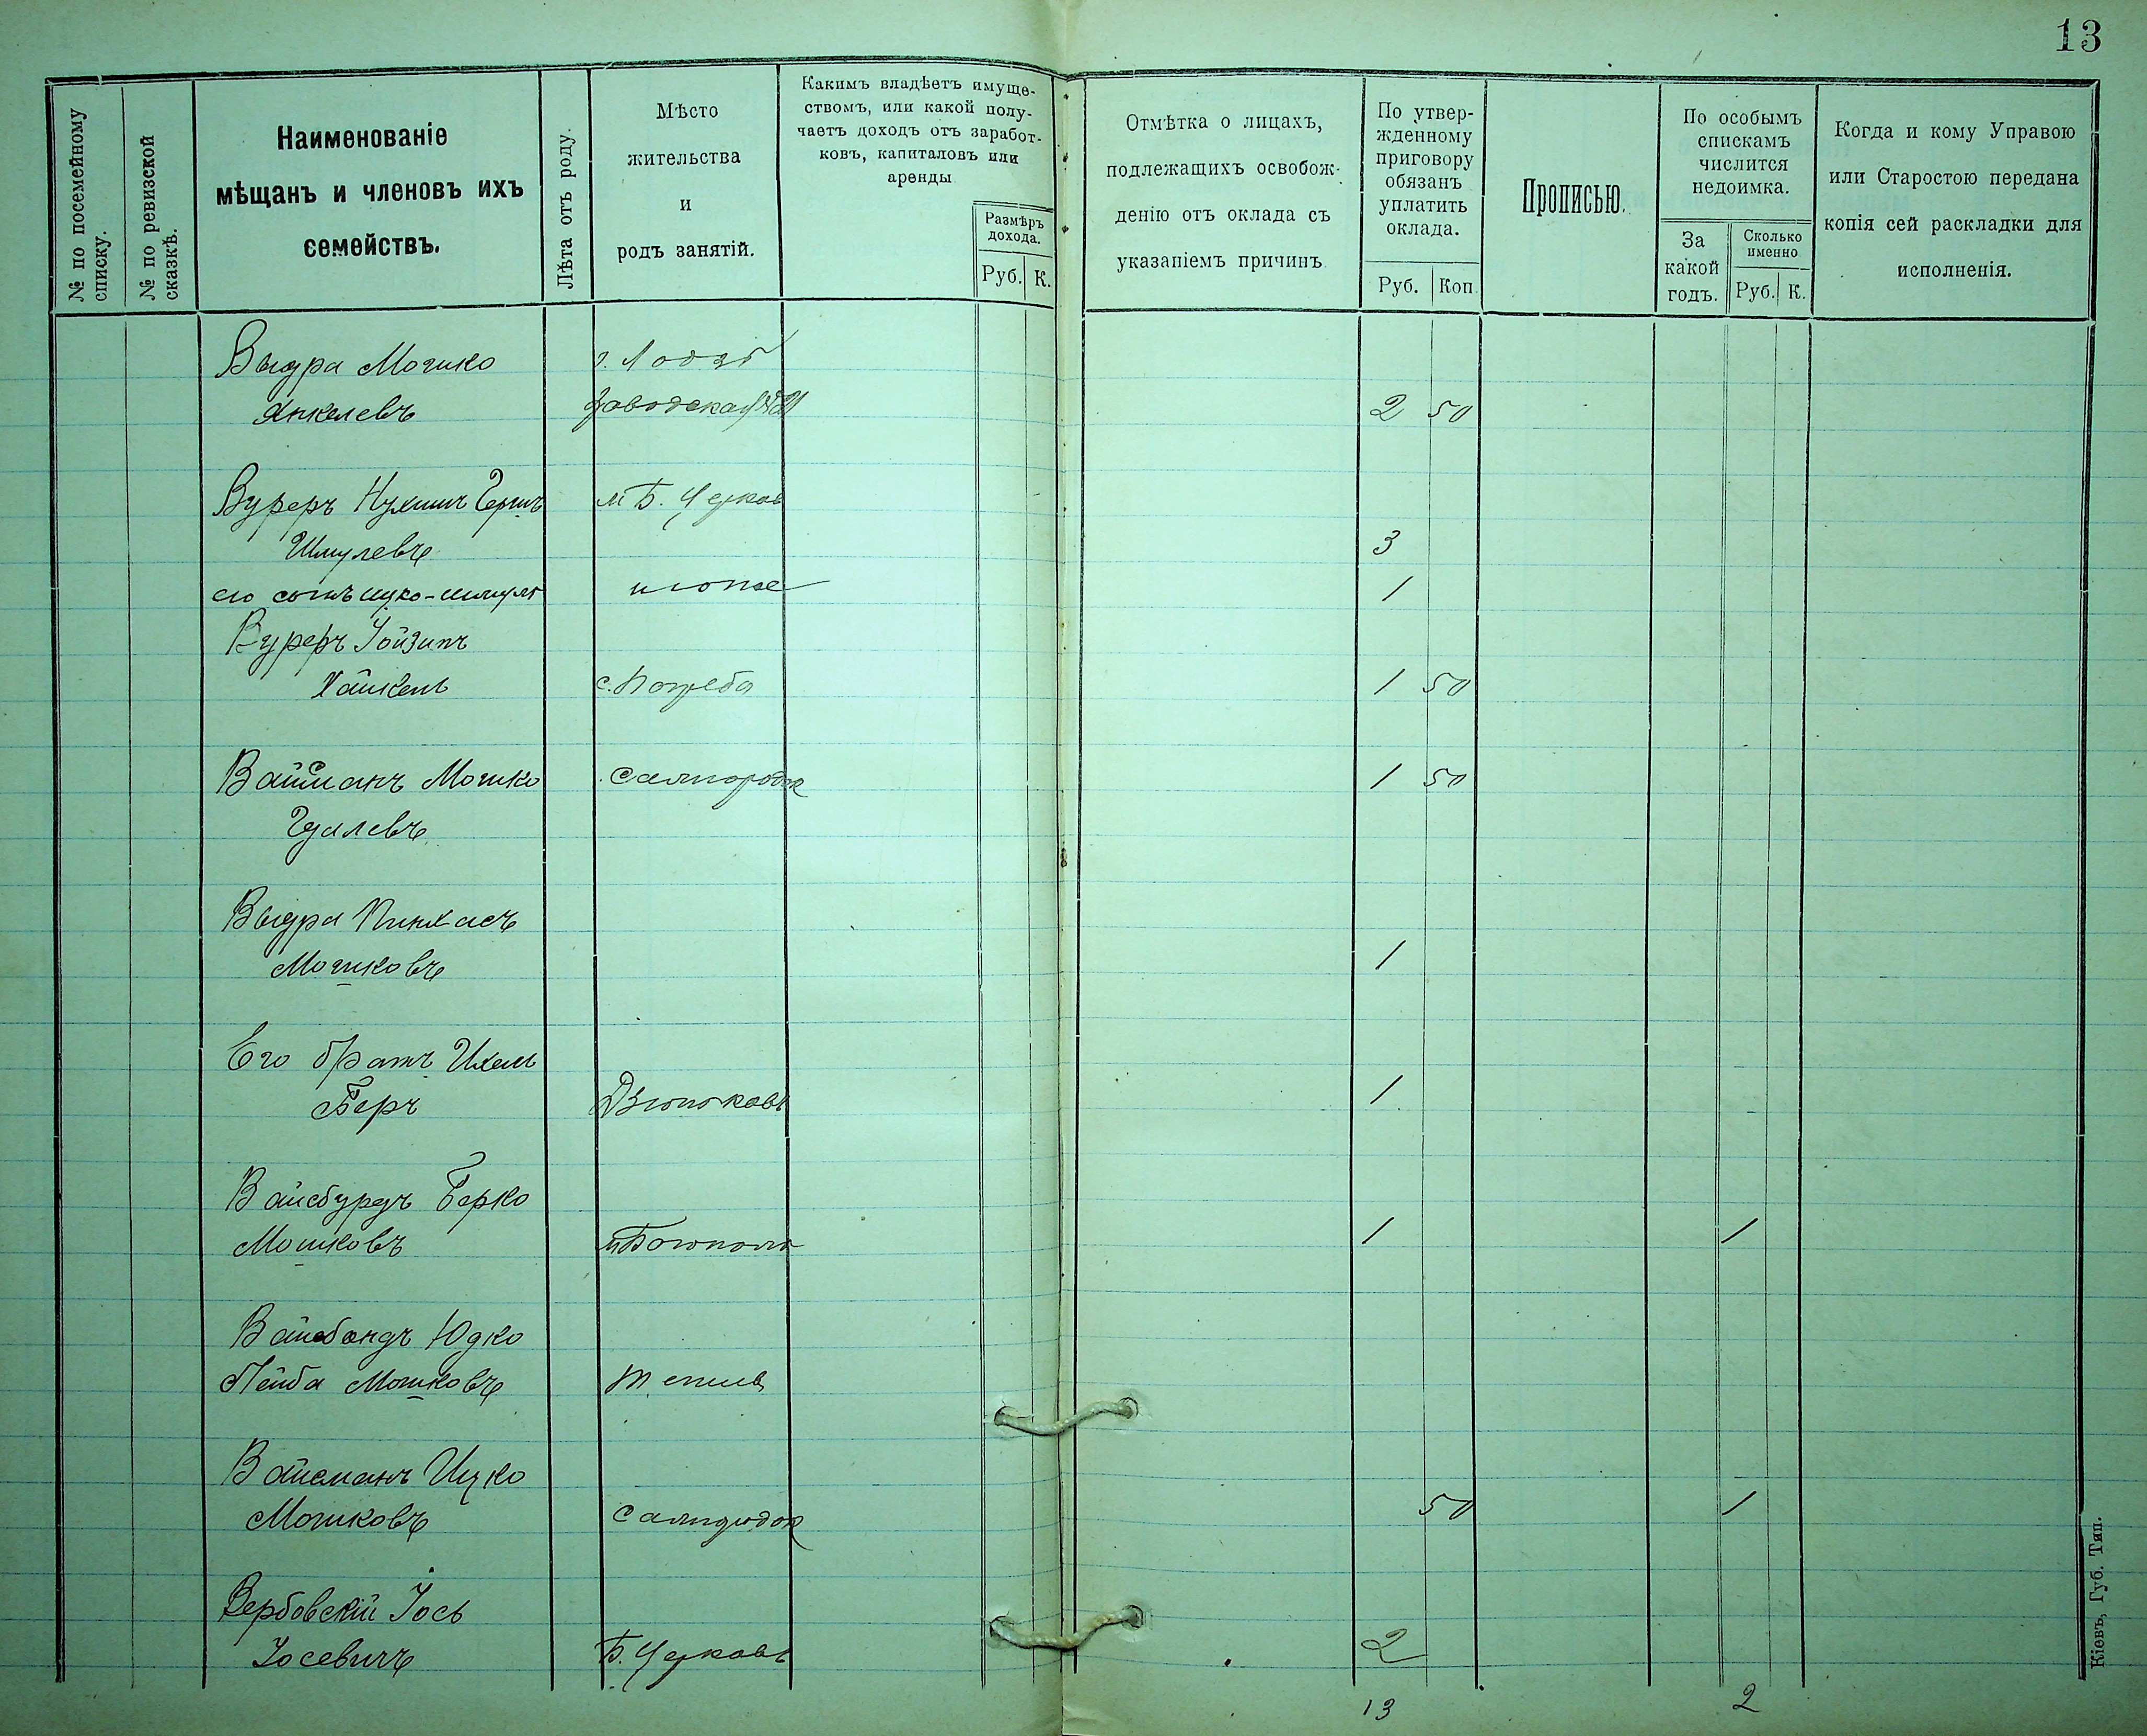 13
№ по посемейному
списку.
№ по ревизской
сказкѣ.
Наименованіе
мѣщанъ и членовъ ихъ
семействъ.
Лѣта отъ роду.
Мѣсто
жительства
и
родъ занятій.
Какимъ владѣетъ имуще-
ствомъ, или какой полу-
чаетъ доходъ отъ заработ-
ковъ, капиталовъ или
аренды
Размѣръ
дохода.
Руб. К.
Отмѣтка о лицахъ,
подлежащихъ освобож-
денію отъ оклада съ
указаніемъ причинъ
По утвер-
жденному
приговору
обязанъ
уплатить
оклада.
Руб. Коп.
Прописью.
По особымъ
спискамъ
числится
недоимка.
За
какой
годъ.
Сколько
именно
Руб. К.
Когда и кому Управою
или Старостою передана
копія сей раскладки для
исполненія.
Выдра Мошко г. Лодзь
Янкелевъ Заводская 2 50
Вуреръ Нухимъ Герш м Б. Церков
Шмулевъ 3
его сынъ Ицко-Шмуль тоже 1
Вуреръ Іойзипъ
Хаикель с. Погреба 1 50
Вайсманъ Мошко Самгородок 1 50
Гдалевъ
Выдра Пинхасъ
Мошковъ 1
Его братъ Ихель
Беръ Дзюньковъ 1
Вайсбурдъ Берко
Мошковъ м Богополь 1 1
Вайсбандъ Юдко
Лейба Мошковъ Тетіев
Вайсманъ Ицко
Мошковъ Самгородок 50 1
Вербовскій Іось
Іосевичъ Б. Церковь 2
13 2
Кіевъ, Губ. Тип.